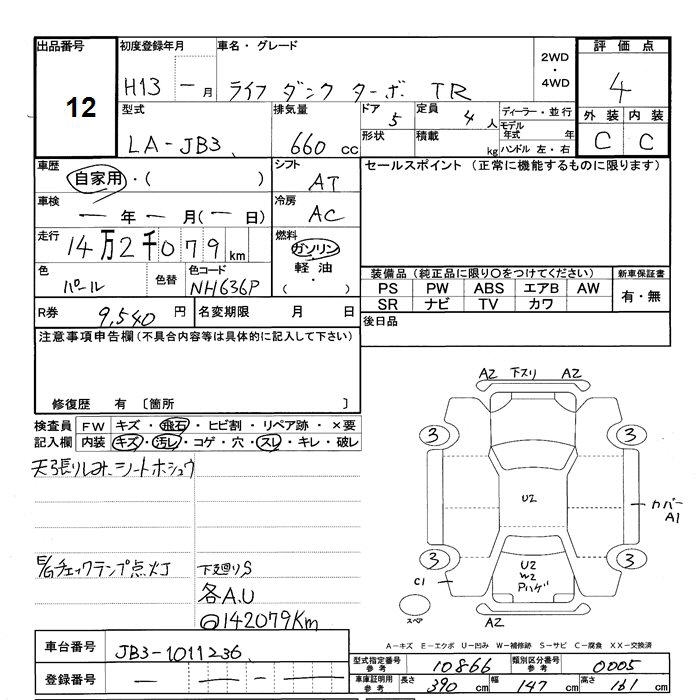 出品番号
12
初度登録年月
H13 一 月
車名・グレード
ライフ ダンク ターボ TR
2WD
・
4WD
評価点
4
外装 内装
C C
型式
LA-JB3
排気量
660 cc
ドア
5
定員
4 人
形状
積載
kg
ディーラー・並行
モデル年式 年
ハンドル 左・右
車歴
自家用・( )
シフト
AT
車検
ー 年 ー 月(ー 日)
冷房
AC
走行
14万2千079 km
燃料
ガソリン
軽油
・
( )
色
パール
色替
色コード
NH636P
R券
9,540 円
名変期限 月 日
セールスポイント(正常に機能するものに限ります)
装備品(純正品に限り○をつけてください)
新車保証書
PS PW ABS エアB AW
SR ナビ TV カワ
有・無
後日品
注意事項申告欄(不具合内容等は具体的に記入して下さい)
修復歴 有 〔箇所 〕
検査員 FW キズ・飛石・ヒビ割・リペア跡・×要
記入欄 内装 キズ・汚レ・コゲ・穴・スレ・キレ・破レ
天張りしみ、シートホシュウ
E/Gチェックランプ点灯
下廻りS
各A.U
@142079Km
A2 下スリ A2
3 3
U2
カバー
A1
3 3
U2
W2
Pハゲ
C1
スペア
A2
A-キズ E-エクボ U-凹み W-補修跡 S-サビ C-腐食 XX-交換済
車台番号
JB3-1011236
登録番号
ー ー ー
型式指定番号
参考
10866
類別区分番号
参考
0005
車庫証明用
参考
長さ 390 cm
幅 147 cm
高さ 161 cm